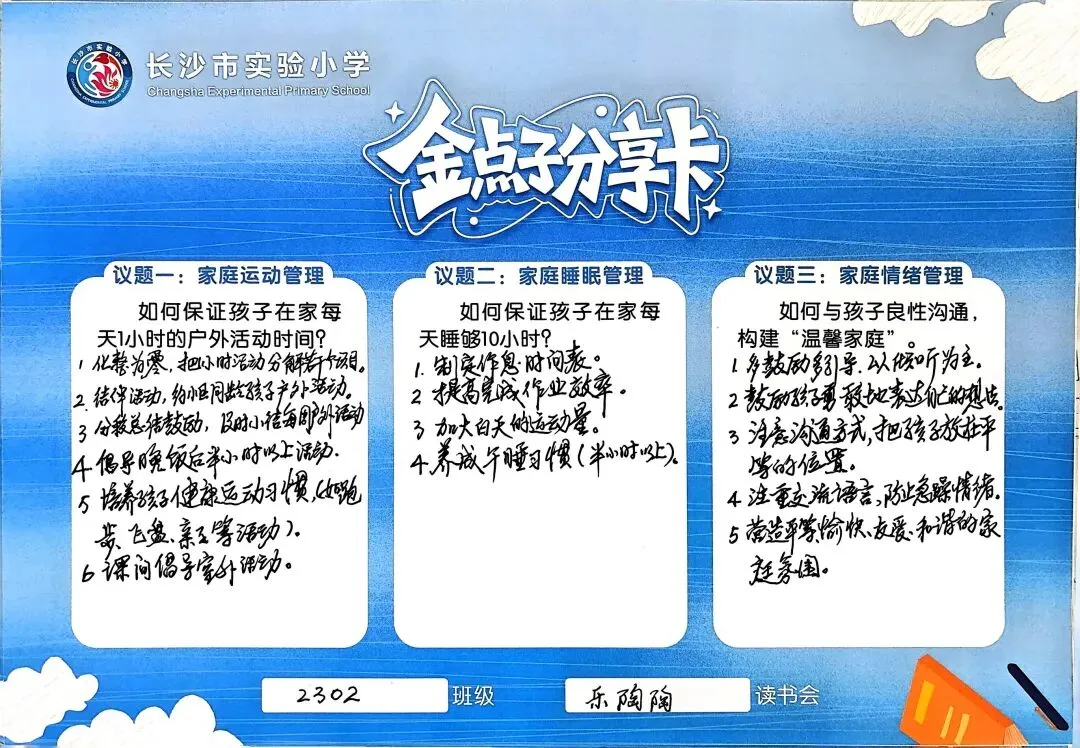 长沙市实验小学
Changsha Experimental Primary School
金点子分享卡
议题一：家庭运动管理
如何保证孩子在家每
天1小时的户外活动时间？
1 化整为零，把小时活动分解若个项目。
2. 结伴活动，约小区同龄孩子户外活动。
3 分散总结鼓励，及时小结每周户外活动
4 倡导晚饭后半小时以上活动.
5 培养孩子健康运动习惯，(如跑
步、飞盘、亲子等活动)。
6 课间倡导室外活动。
议题二：家庭睡眠管理
如何保证孩子在家每
天睡够10小时？
1. 制定作息时间表。
2 提高完成作业效率。
3 加大白天的运动量。
4. 养成午睡习惯(半小时以上)。
议题三：家庭情绪管理
如何与孩子良性沟通，
构建“温馨家庭”。
1 多鼓励多引导，以倾听为主。
2 鼓励孩子勇敢地表达自己的想法。
3 注意沟通方式，把孩子放在平
等的位置。
4 注重交流语言，防止急躁情绪。
5 营造平等、愉快、友爱、和谐的家
庭氛围。
2302 班级
乐陶陶 读书会